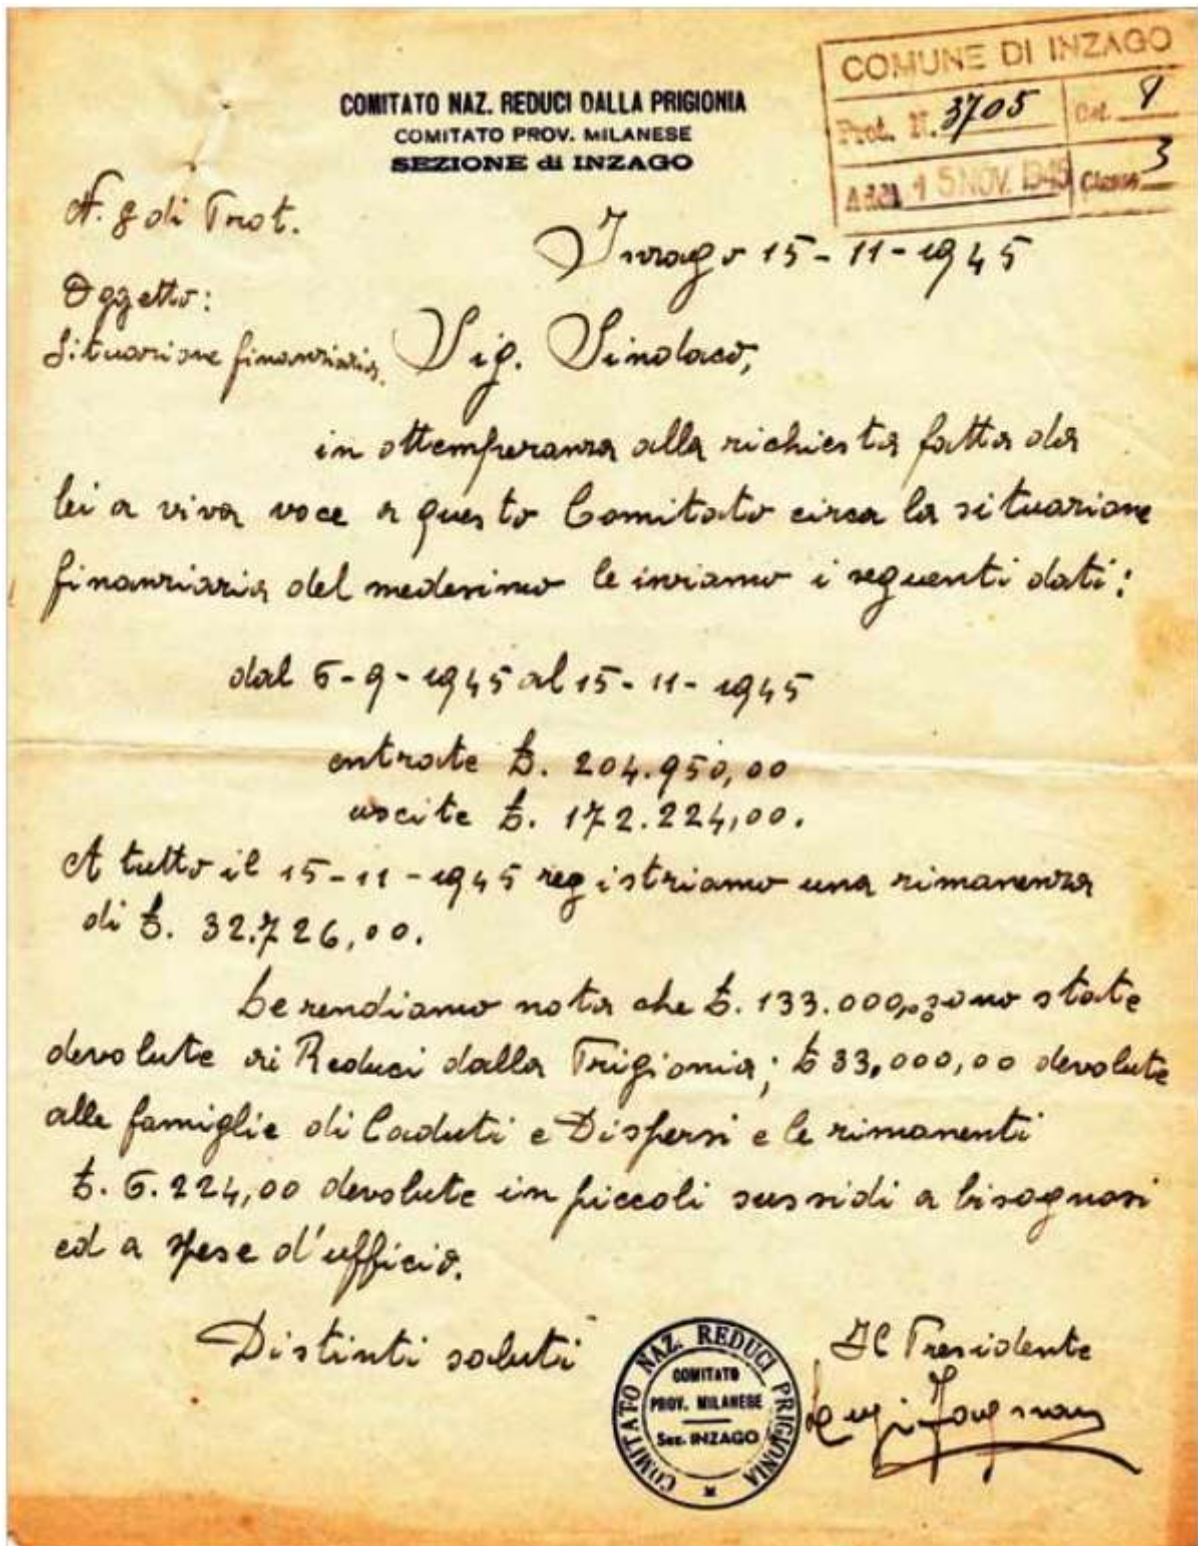 COMUNE DI INZAGO
Prot. N. 3705 Cat.
Addì 15 NOV. 1945 Classe 3
COMITATO NAZ. REDUCI DALLA PRIGIONIA
COMITATO PROV. MILANESE
SEZIONE di INZAGO
N. 8 di Prot.
Inzago 15-11-1945
Oggetto:
Situazione finanziaria.
Sig. Sindaco,
in ottemperanza alla richiesta fatta da
lei a viva voce a questo Comitato circa la situazione
finanziaria del medesimo le inviamo i seguenti dati:
dal 6-9-1945 al 15-11-1945
entrate £. 204.950,00
uscite £. 172.224,00.
A tutto il 15-11-1945 registriamo una rimanenza
di £. 32.726,00.
Le rendiamo nota che £. 133.000,00 sono state
devolute ai Reduci dalla Prigionia; £ 33,000,00 devolute
alle famiglie di Caduti e Dispersi e le rimanenti
£. 6.224,00 devolute in piccoli sussidi a bisognosi
ed a spese d'ufficio.
Distinti saluti
Il Presidente
Luigi
COMITATO NAZ. REDUCI PRIGIONIA
COMITATO
PROV. MILANESE
Sez. INZAGO